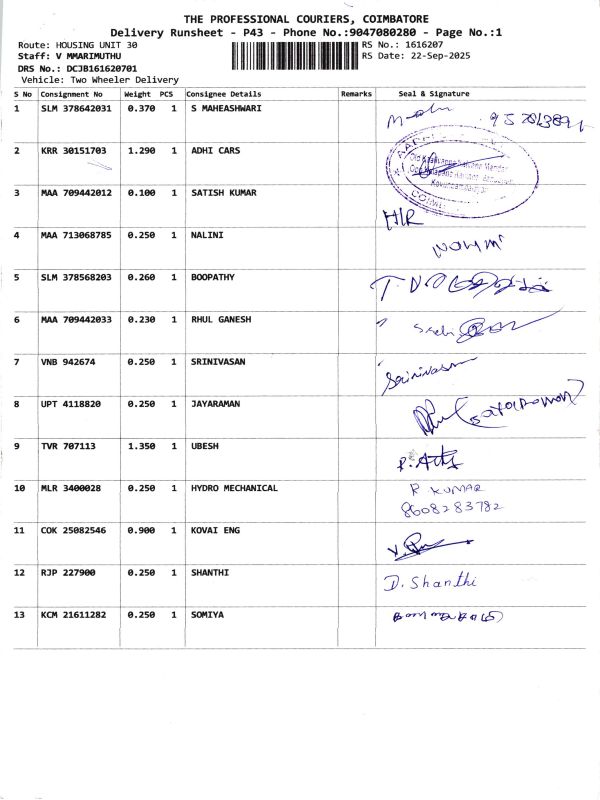 THE PROFESSIONAL COURIERS, COIMBATORE
Delivery Runsheet - P43 - Phone No.:9047080280 - Page No.:1
Route: HOUSING UNIT 30 RS No.: 1616207
Staff: V MMARIMUTHU RS Date: 22-Sep-2025
DRS No.: DCJB161620701
Vehicle: Two Wheeler Delivery
S No Consignment No Weight PCS Consignee Details Remarks Seal & Signature
1 SLM 378642031 0.370 1 S MAHEASHWARI
2 KRR 30151703 1.290 1 ADHI CARS
3 MAA 709442012 0.100 1 SATISH KUMAR HR
4 MAA 713068785 0.250 1 NALINI
5 SLM 378568203 0.260 1 BOOPATHY
6 MAA 709442033 0.230 1 RHUL GANESH
7 VNB 942674 0.250 1 SRINIVASAN Srinivasan
8 UPT 4118820 0.250 1 JAYARAMAN
9 TVR 707113 1.350 1 UBESH
10 MLR 3400028 0.250 1 HYDRO MECHANICAL R KUMAR
8608283782
11 COK 25082546 0.900 1 KOVAI ENG
12 RJP 227900 0.250 1 SHANTHI D. Shanthi
13 KCM 21611282 0.250 1 SOMIYA